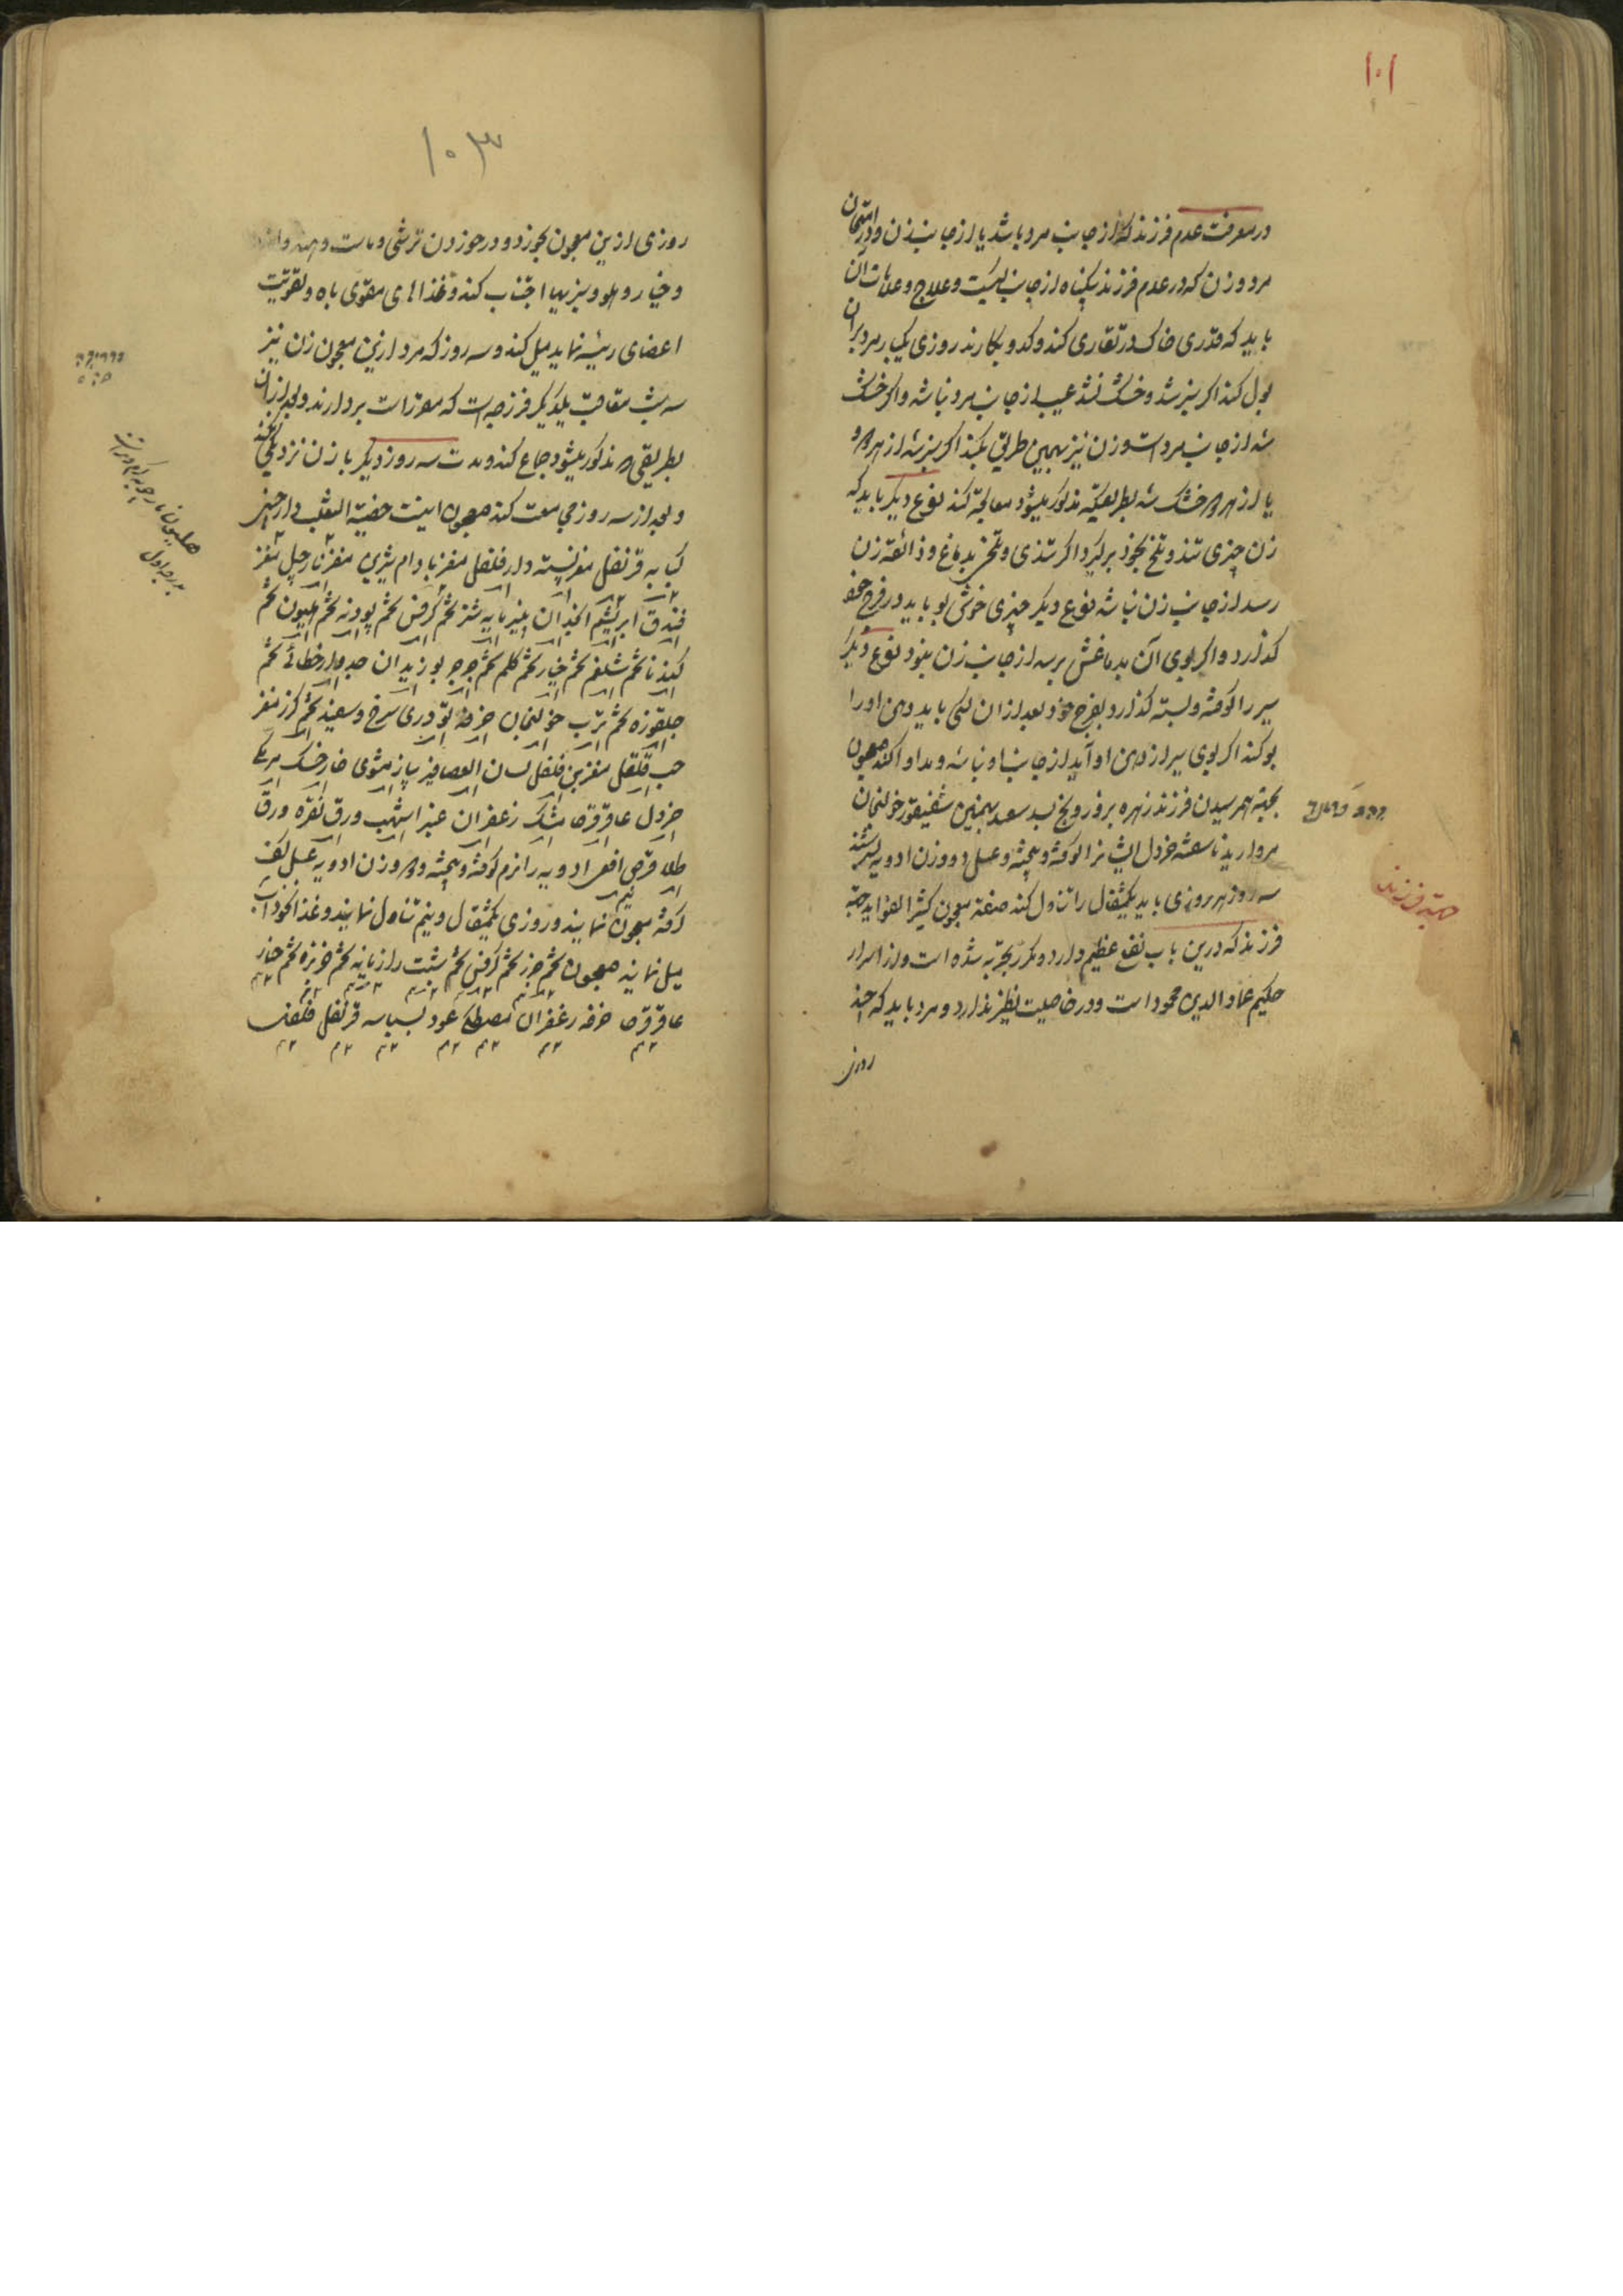 ۱۰۱
در معرفت عدم فرزند که از جانب مرد باشد یا از جانب زن و در امتحان
مرد و زن که در عدم فرزند یکپناه از جانب کیست و علاج و علامات آن
باید که قدری خاک در تغاری کند و کدو بکارند روزی یکبار مرد بران
بول کند اکر سبز شد و خشک نشد عیب از جانب مرد نباشد و اکر خشک
شد از جانب مرد است و زن نیز بهمین طریق بکند اکر سبز شد از هر دو
یا از هر دو خشک شد بطریقیکه مذکور میشود معالجه کند نوع دیکر باید که
زن چیزی تند و تلخ بخود برگیرد اکر تندی و تلخی بدماغ و ذائقه زن
رسد از جانب زن نباشد نوع دیکر چیزی خوش بو باید در فرج خود
کذارد و اکر بوی آن بدماغش برسد از جانب زن نبود نوع دیکر
سیر را کوفته و بسته کذارد بفرج خود بعد از ان کسی باید دهن او را
بو کند اکر بوی سیر از دهن او آید از جانب او نباشد و مداوا کند معجون
بجهة بهمرسیدن فرزند زهره بروز و بخسبد سعد بهمنین شقیقور خولنجان
مروارید ناسفته خردل ایشانرا کوفته و بیخته و عسل دو وزن ادویه بسرشند
سه روز هر روزی باید یکمثقال را تناول کند صفة معجون کثیر الفواید جهة
فرزند که درین باب نفع عظیم دارد و مکرر بتجربه شده است و از اسرار
حکیم عماد الدین محمود است و در خاصیت نظیر ندارد و مرد باید که چند
روزی
جهة فرزند
۱۰۳
روزی ازین معجون بخورد و در خوردن ترشی و ماست و
و خیار و هلو و سبزیها اجتناب کند و غذاهای مقوی باه و تقویت
اعضای رئیسه نماید میل کند و سه روز که مرد ازین معجون زن نیز
سه شب متعاقب یکدیکر فرزجه است که معزز است بردارند و بعد از ان
بطریقی که مذکور میشود جماع کند و مدت سه روز دیکر با زن نزدیکی نکند
و بعد از سه روز مجامعت کند معجون اینست خصیة الثعلب دارچینی
کبابه قرنفل مغز پسته دارفلفل مغز بادام شیرین مغز نارجیل مغز
فندق ابریشم انجدان پنیر مایه شتر تخم کرفس تخم پودنه تخم هلیون تخم
کندنا تخم شلغم تخم خیار تخم کلم تخم جرجر بوزیدان جدوار خطائی تخم
جلقوزه تخم ترب خولنجان خرفه تودری سرخ و سفید تخم کزر مغز
حب قلقل مغز بن فلفل لسان العصافیر پیاز مشوی خارخسک مربی
خردل عاقرقرحا مشک زعفران عنبر اشهب ورق نقره ورق
طلا قرص افعی ادویه را نرم کوفته و بیخته و هموزن ادویه عسل کف
کرفته معجون نمایند و روزی یکمثقال و نیم تناول نمایند و غذا نخوداب
میل نمایند معجون تخم جزر تخم کرفس تخم شبت رازیانه تخم خربزه تخم خیار
عاقرقرحا خرفه زعفران مصطکی عود بسباسه قرنفل فلفل